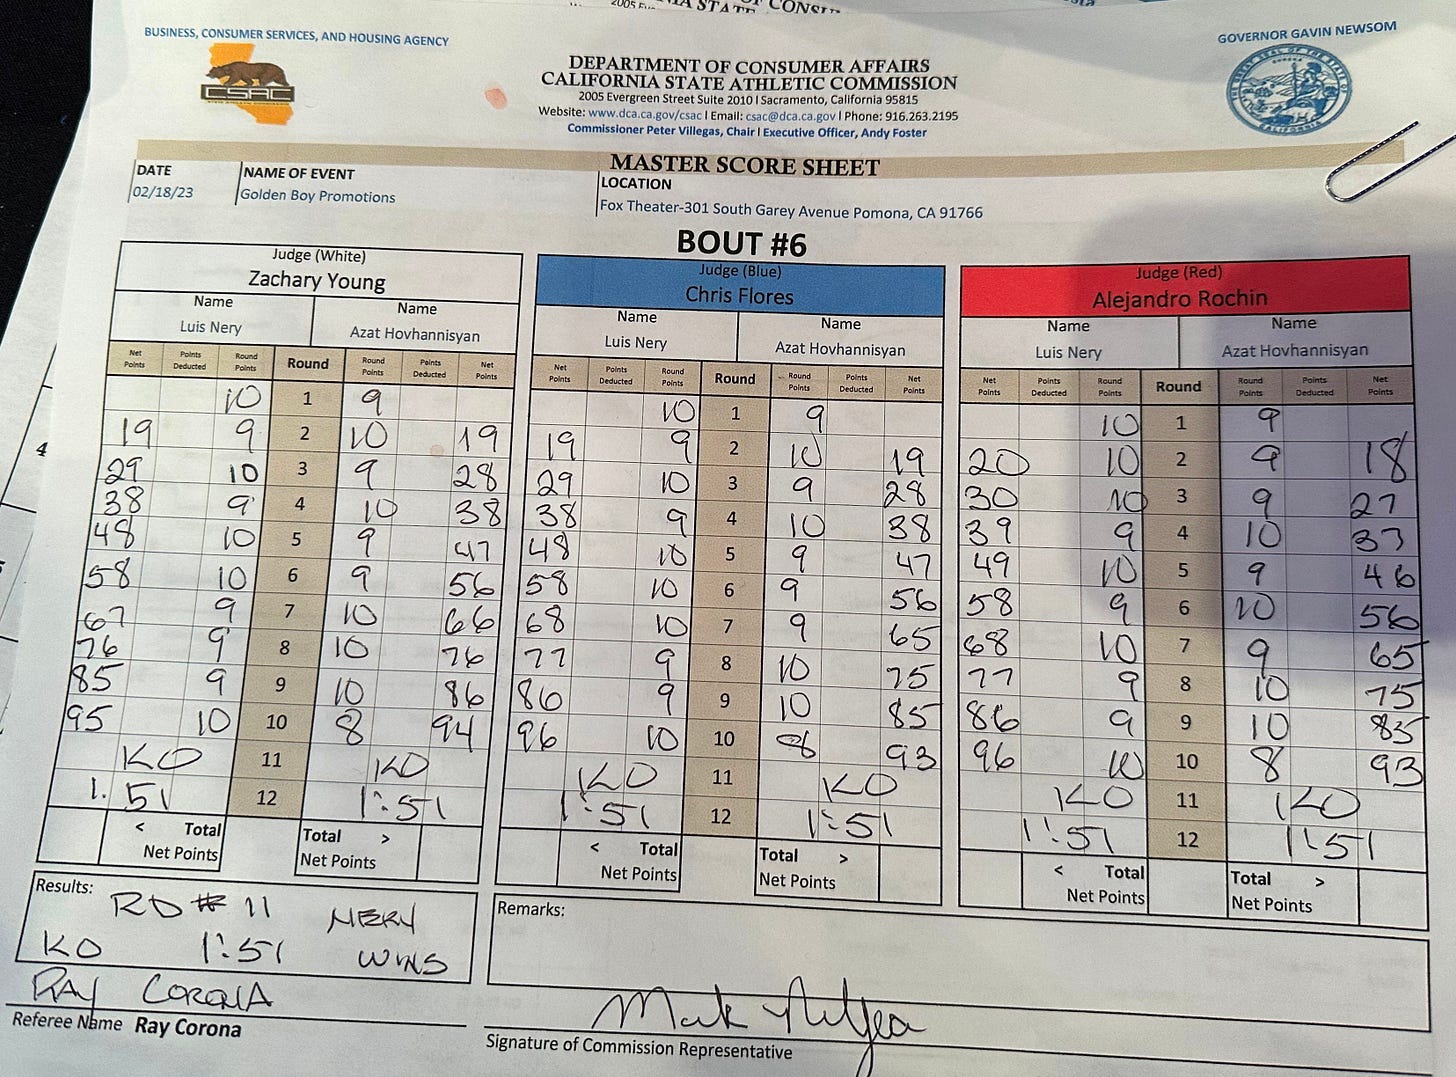 BUSINESS, CONSUMER SERVICES, AND HOUSING AGENCY
GOVERNOR GAVIN NEWSOM
CSAC
DEPARTMENT OF CONSUMER AFFAIRS
CALIFORNIA STATE ATHLETIC COMMISSION
2005 Evergreen Street Suite 2010 | Sacramento, California 95815
Website: www.dca.ca.gov/csac | Email: csac@dca.ca.gov | Phone: 916.263.2195
Commissioner Peter Villegas, Chair | Executive Officer, Andy Foster
MASTER SCORE SHEET
DATE NAME OF EVENT LOCATION
02/18/23 Golden Boy Promotions Fox Theater-301 South Garey Avenue Pomona, CA 91766
BOUT #6
Judge (White) Judge (Blue) Judge (Red)
Zachary Young Chris Flores Alejandro Rochin
Name Name Name Name Name Name
Luis Nery Azat Hovhannisyan Luis Nery Azat Hovhannisyan Luis Nery Azat Hovhannisyan
Net Points Points Deducted Round Points Round Round Points Points Deducted Net Points Net Points Points Deducted Round Points Round Round Points Points Deducted Net Points Net Points Points Deducted Round Points Round Round Points Points Deducted Net Points
10 1 9 10 1 9 10 1 9
19 9 2 10 19 19 9 2 10 19 20 10 2 9 18
29 10 3 9 28 29 10 3 9 28 30 10 3 9 27
38 9 4 10 38 38 9 4 10 38 39 9 4 10 37
48 10 5 9 47 48 10 5 9 47 49 10 5 9 46
58 10 6 9 56 58 10 6 9 56 58 9 6 10 56
67 9 7 10 66 68 10 7 9 65 68 10 7 9 65
76 9 8 10 76 77 9 8 10 75 77 9 8 10 75
85 9 9 10 86 86 9 9 10 85 86 9 9 10 85
95 10 10 8 94 96 10 10 8 93 96 10 10 8 93
KO 11 KO KO 11 KO KO 11 KO
1.51 12 1:51 1:51 12 1:51 1:51 12 1:51
< Total Total > < Total Total > < Total Total >
Net Points Net Points Net Points Net Points Net Points Net Points
Results: RD #11 NERY
KO 1:51 WINS
Remarks:
RAY CORONA
Referee Name Ray Corona
Signature of Commission Representative
4